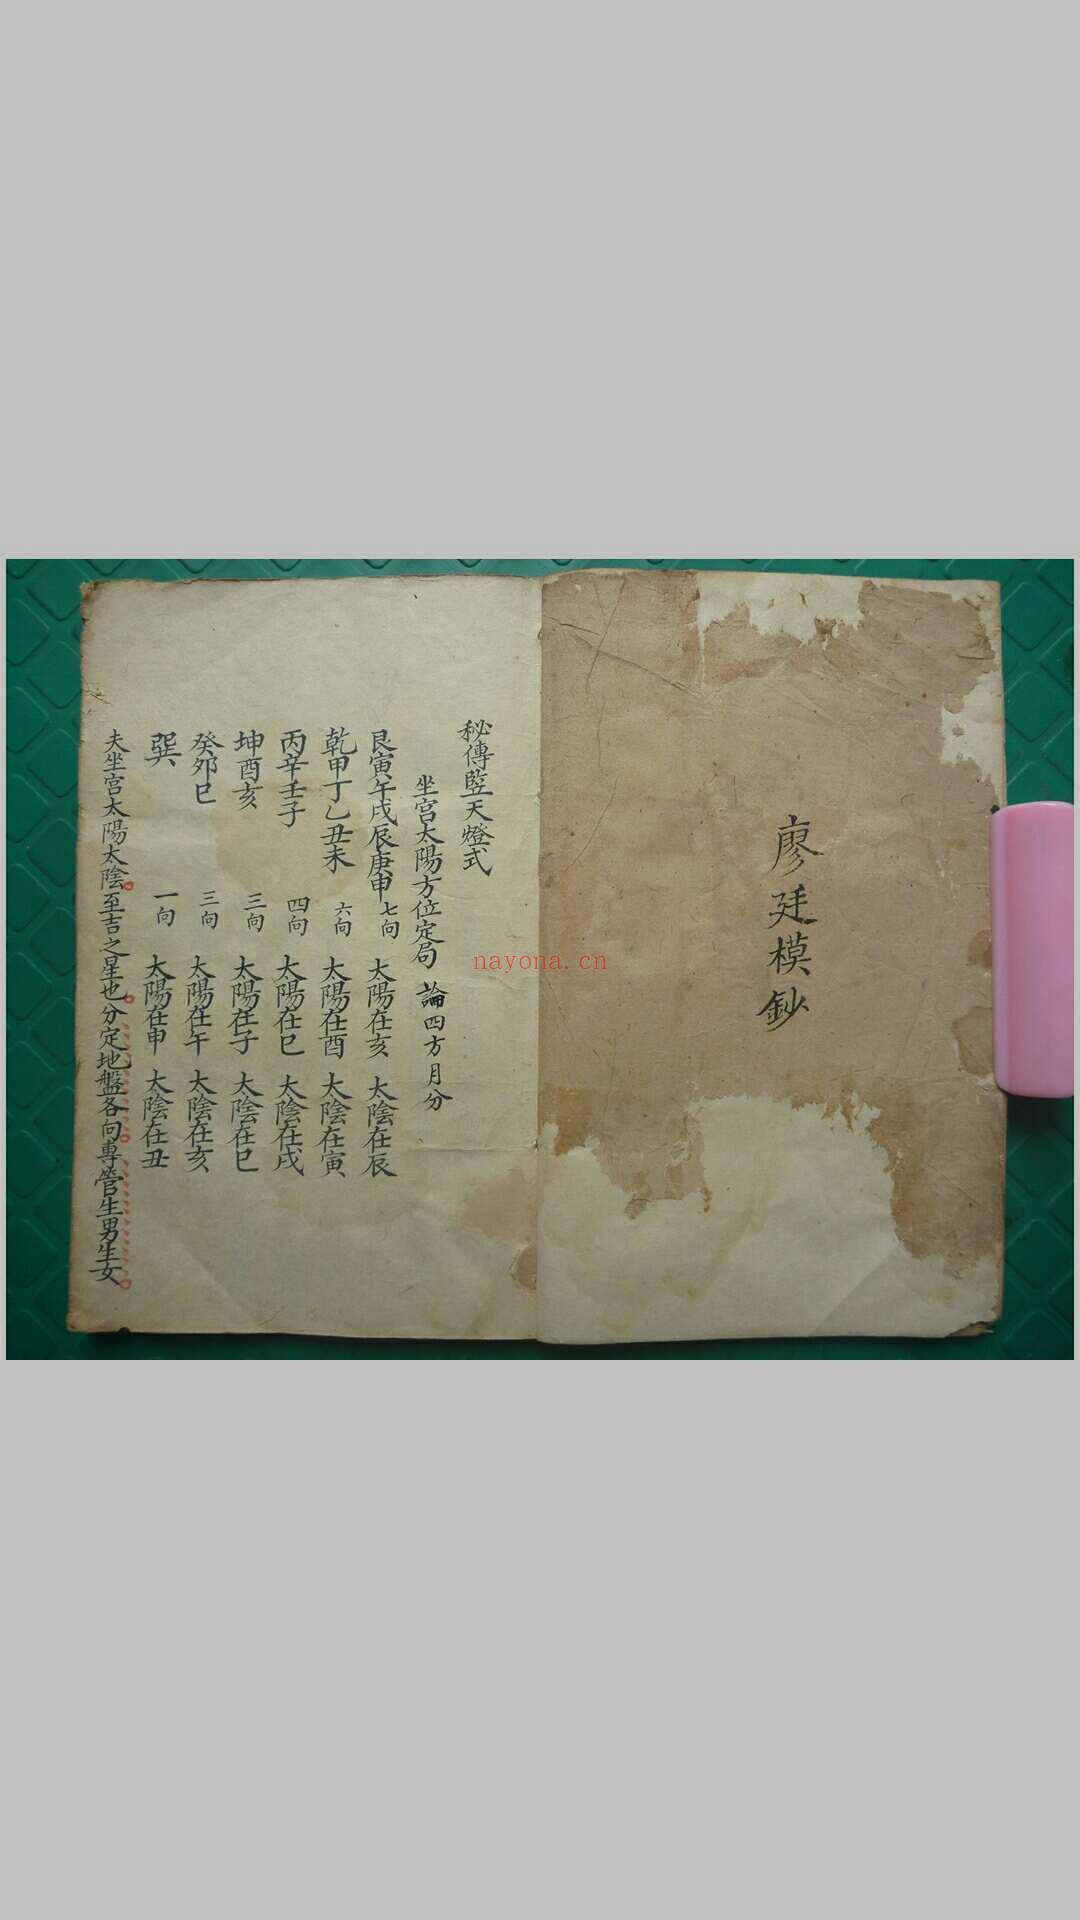 廖廷模鈔
秘傳竪天燈式
坐宮太陽方位定局 論四方月分
艮寅午戌辰庚申 七向 太陽在亥 太陰在辰
乾甲丁乙丑未 六向 太陽在酉 太陰在寅
丙辛壬子 四向 太陽在巳 太陰在戌
坤酉亥 三向 太陽在子 太陰在巳
癸卯巳 三向 太陽在午 太陰在亥
巽 一向 太陽在申 太陰在丑
夫坐宮太陽太陰至吉之星也分定地盤各向專管生男生女
nayona.cn